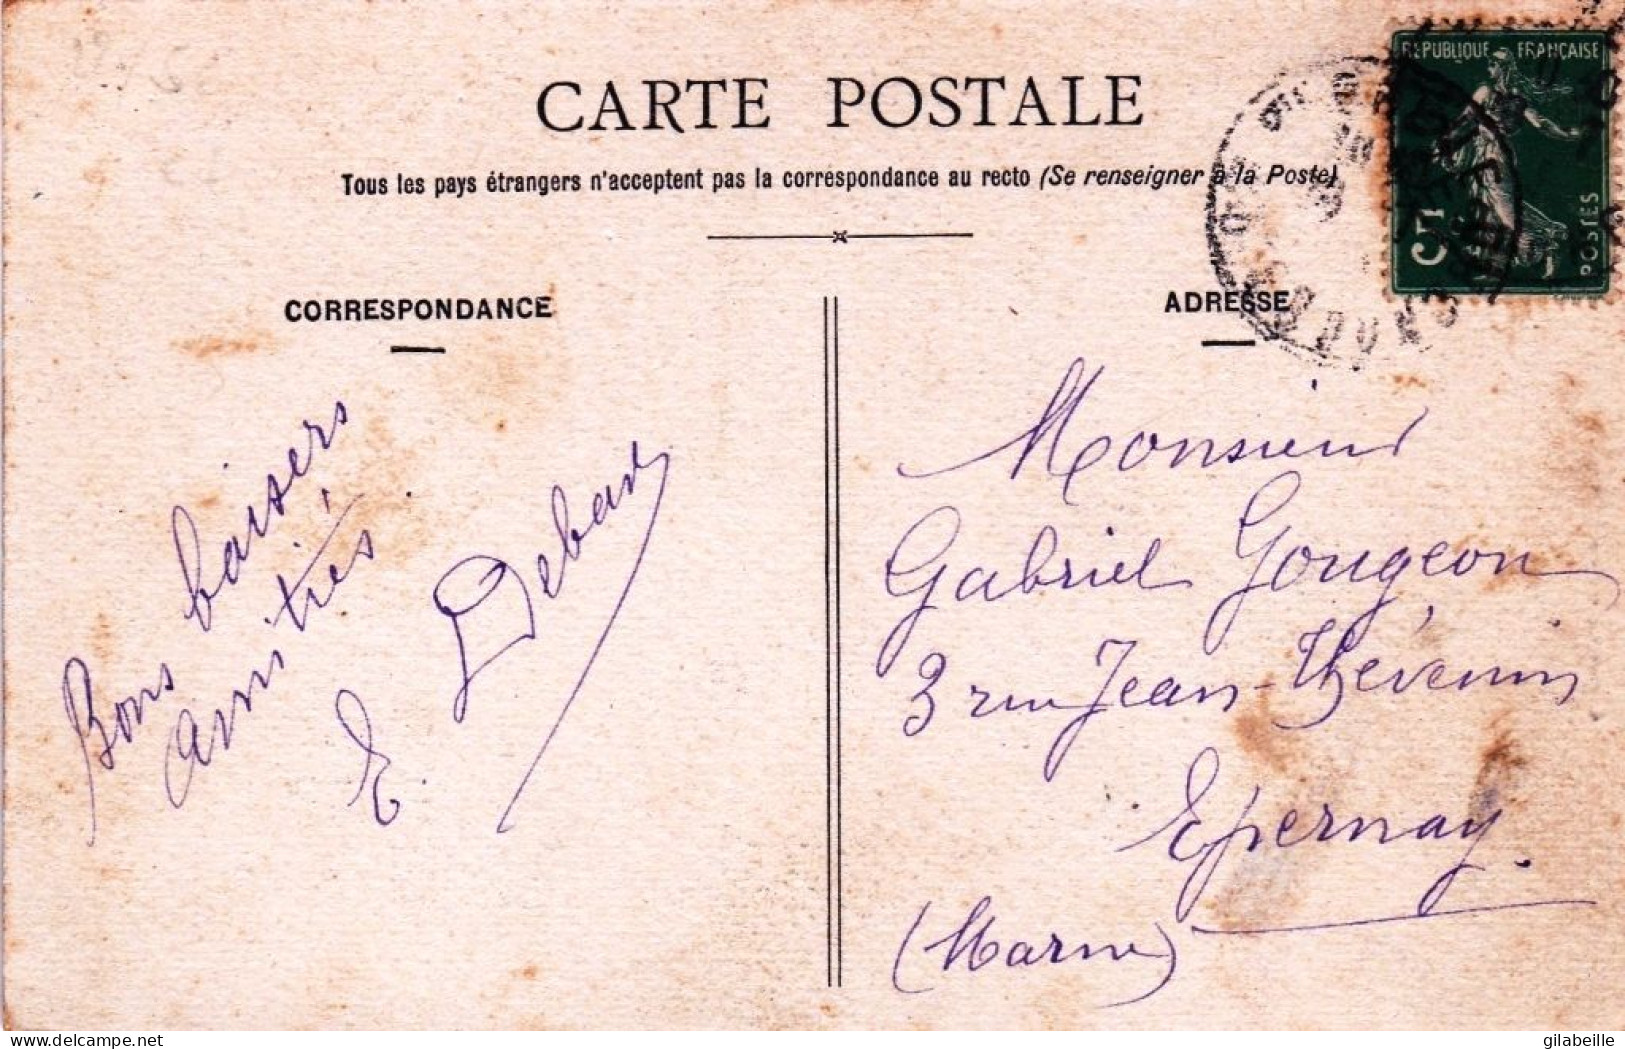 CARTE POSTALE
Tous les pays étrangers n'acceptent pas la correspondance au recto (Se renseigner à la Poste)
REPUBLIQUE FRANÇAISE
5
POSTES
CORRESPONDANCE
Bons baisers
amitiés
E. Debar
ADRESSE
Monsieur
Gabriel Gougeon
3 rue Jean-Thévenin
Epernay.
(Marne)
delcampe.net
gilabeille